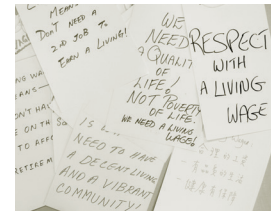 MEAN
DON'T NEED A
2ND JOB TO
EARN A LIVING!
WE
NEED
A QUALITY
OF
LIFE!
NOT POVERTY
OF LIFE.
WE NEED A LIVING
WAGE!
RESPECT
WITH
A LIVING
WAGE
NG WA
EANS
ON'T HA
E ON TH
TO AFF
RETIREM
NEED TO HAVE
A DECENT LIVING
AND A VIBRANT
COMMUNITY!